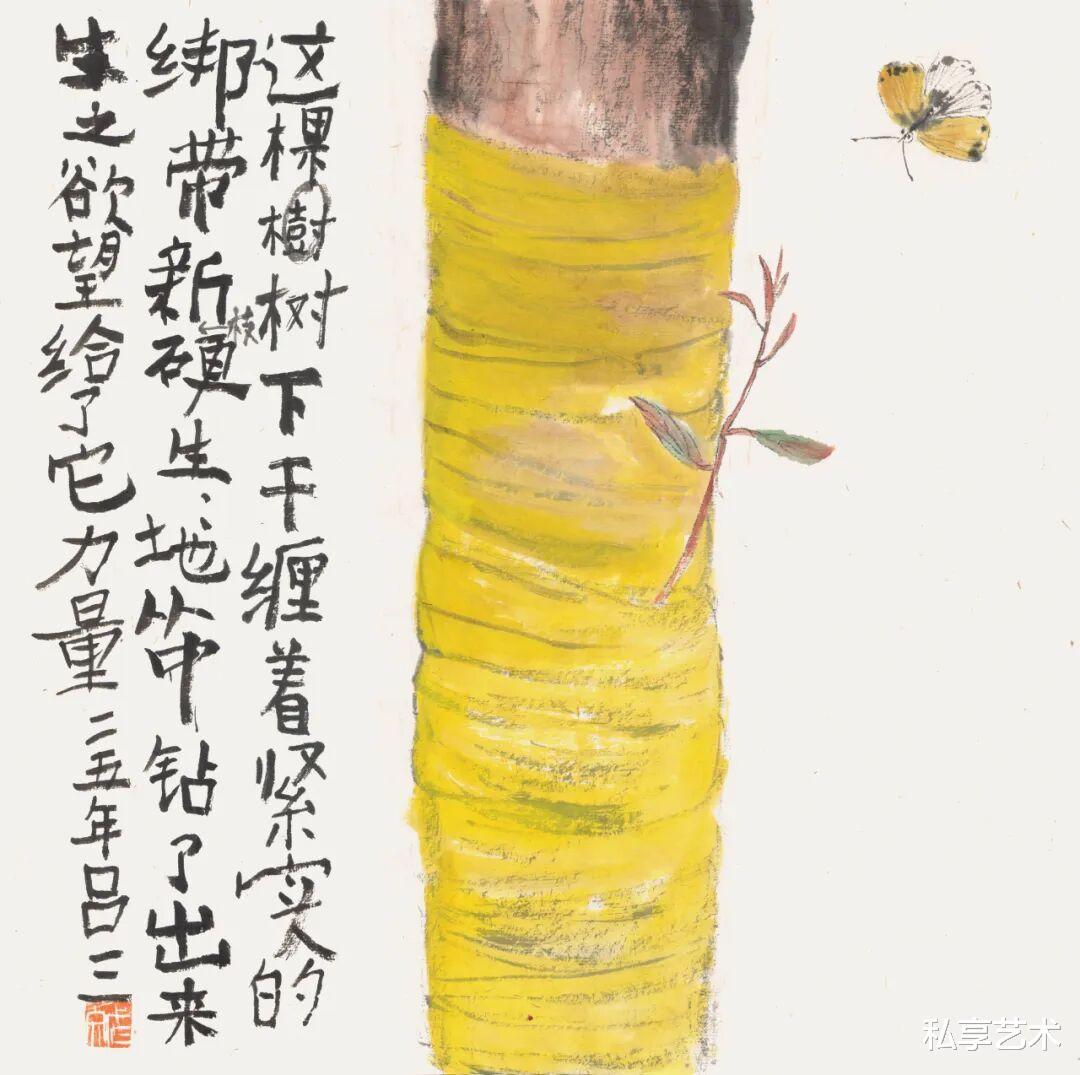 这棵樹树下干缠着紧实的
绑带新枝硬生、地从中钻了出来
生之欲望给了它力量二五年吕三
私享艺术